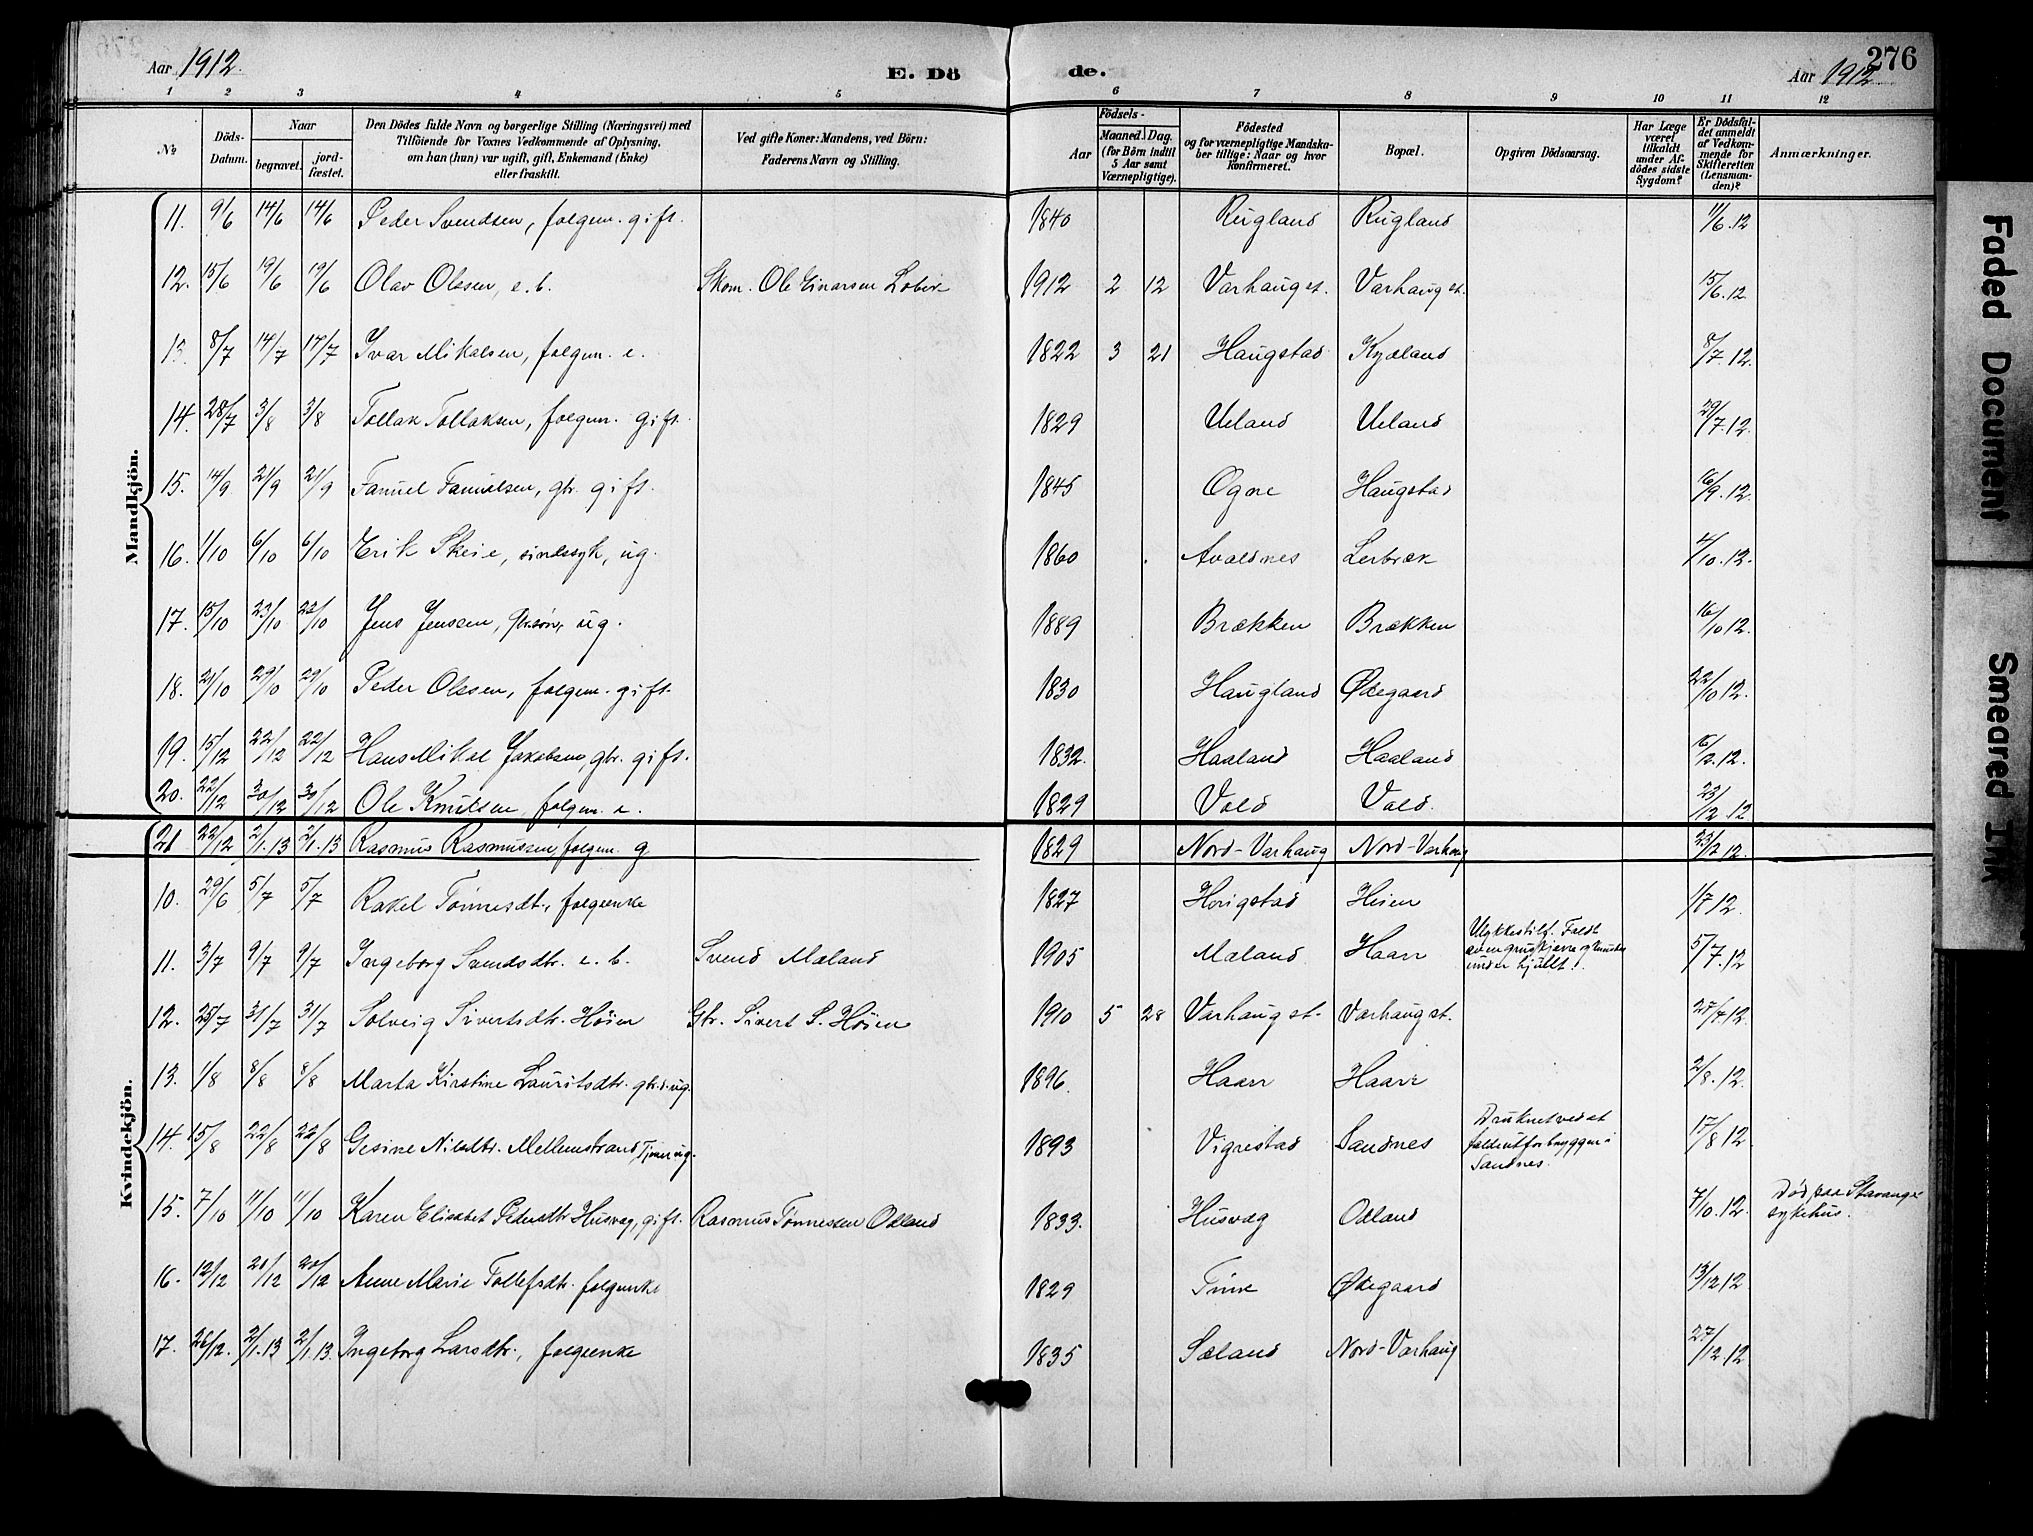 Aar 1912.
E. Dö
de.
276
Aar 1912
1 2 3 4 5 6 7 8 9 10 11 12
№
Döds-Datum.
Naar
begravet.
jord-fæstet.
Den Dödes fulde Navn og borgerlige Stilling (Næringsvei) med
Tilföiende for Voxnes Vedkommende af Oplysning,
om han (hun) var ugift, gift, Enkemand (Enke)
eller fraskilt.
Ved gifte Koner: Mandens, ved Börn:
Faderens Navn og Stilling.
Födsels-
Aar
Maaned. Dag.
(for Börn indtil
5 Aar samt
Værnepligtige).
Födested
og for værnepligtige Mandska-
ber tillige: Naar og hvor
Konfirmeret.
Bopæl.
Opgiven Dödsaarsag.
Har Læge
været
tilkaldt
under Af-
dödes sidste
Sygdom?
Er Dödsfal-
det anmeldt
af Vedkom-
mende for
Skifteretten
(Lensman-
den)?
Anmærkninger.
Mandkjön.
11. 9/6 14/6 14/6 Peder Svendsen, folgem. gift. 1840 Rugland Rugland 11/6.12
12. 15/6 19/6 19/6 Olav Olesen, e.b. Skom. Ole Einarsen 1912 2 12 Varhaug st. Varhaug st. 15/6.12
13. 8/7 14/7 14/7 Ivar Mikalsen, folgem. e. 1822 3 21 Haugstad Kydland 8/7.12.
14. 28/7 3/8 3/8 Tollak Tollaksen, folgem. gift. 1829 Ueland Ueland 29/7.12.
15. 14/9 21/9 21/9 Fanuel Fanuelsen, gbr. gift. 1845 Ogne Haugstad 16/9.12.
16. 1/10 6/10 6/10 Erik Skeie, sindssyk, ug. 1860 Avaldnes Lerbræk 4/10.12.
17. 15/10 23/10 23/10 Jens Jenssen, gbr.søn, ug. 1889 Brækken Brækken 16/10 12.
18. 21/10 29/10 29/10 Peder Olesen, folgem. gift. 1830 Haugland Ødegaard 22/10 12.
19. 15/12 22/12 22/12 Hans Mikal Jakobsen, gbr. gift. 1832. Haaland Haaland 16/12.12.
20. 22/12 30/12 30/12 Ole Knutsen, folgem. e. 1829 Vold Vold. 23/12 12
21 22/12 2/1.13 2/1.13 Rasmus Rasmussen, folgem. g 1829 Nord-Varhaug Nord-Varhaug 23/12 12.
Kvindekjön.
10. 29/6 5/7 5/7 Rakel Tønnesdt., folgeenke 1827 Horigstad Heien 1/7 12.
11. 3/7 9/7 9/7 Ingeborg Svendsdtr. e.b. Svend Mæland 1905 Mæland Haarr Ulykkestilf. Faldt
av en gruskjærre og knustes
under hjullt. 5/7.12
12. 25/7 31/7 31/7 Solveig Sivertsdtr. Høien Gbr. Sivert S. Høien 1910 5 28 Varhaug st. Varhaug st. 27/7.12.
13. 1/8 8/8 8/8 Marta Kirstine Lauritsdtr. gbrd. ug. 1896. Haarr Haarr 2/8.12.
14. 15/8 22/8 22/8 Gesine Nilsdtr. Mellemstrand, Tjener ug. 1893 Vigrestad Sandnes Druknet ved at
falde ut for bryggen i
Sandnes. 17/8 12.
15. 7/10 11/10 11/10 Karen Elisabet Pedersdtr. Husvæg, gift. Rasmus Tønnessen Odland 1833. Husvæg Odland 7/10.12. Død paa Stavanger
sykehus.
16. 12/12 20/12 20/12 Anne Marie Tollefsdtr. folgeenke 1829 Time Ødegaard 13/12 12
17. 26/12. 2/1.13 2/1.13. Ingeborg Larsdtr., folgeenke 1835 Sæland Nord-Varhaug 27/12.12
Faded Document
Smeared Ink